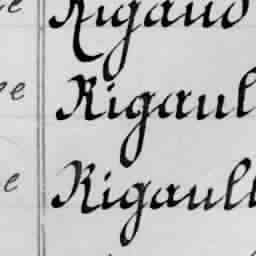 e Rigaud
e Rigaul
e Rigaull